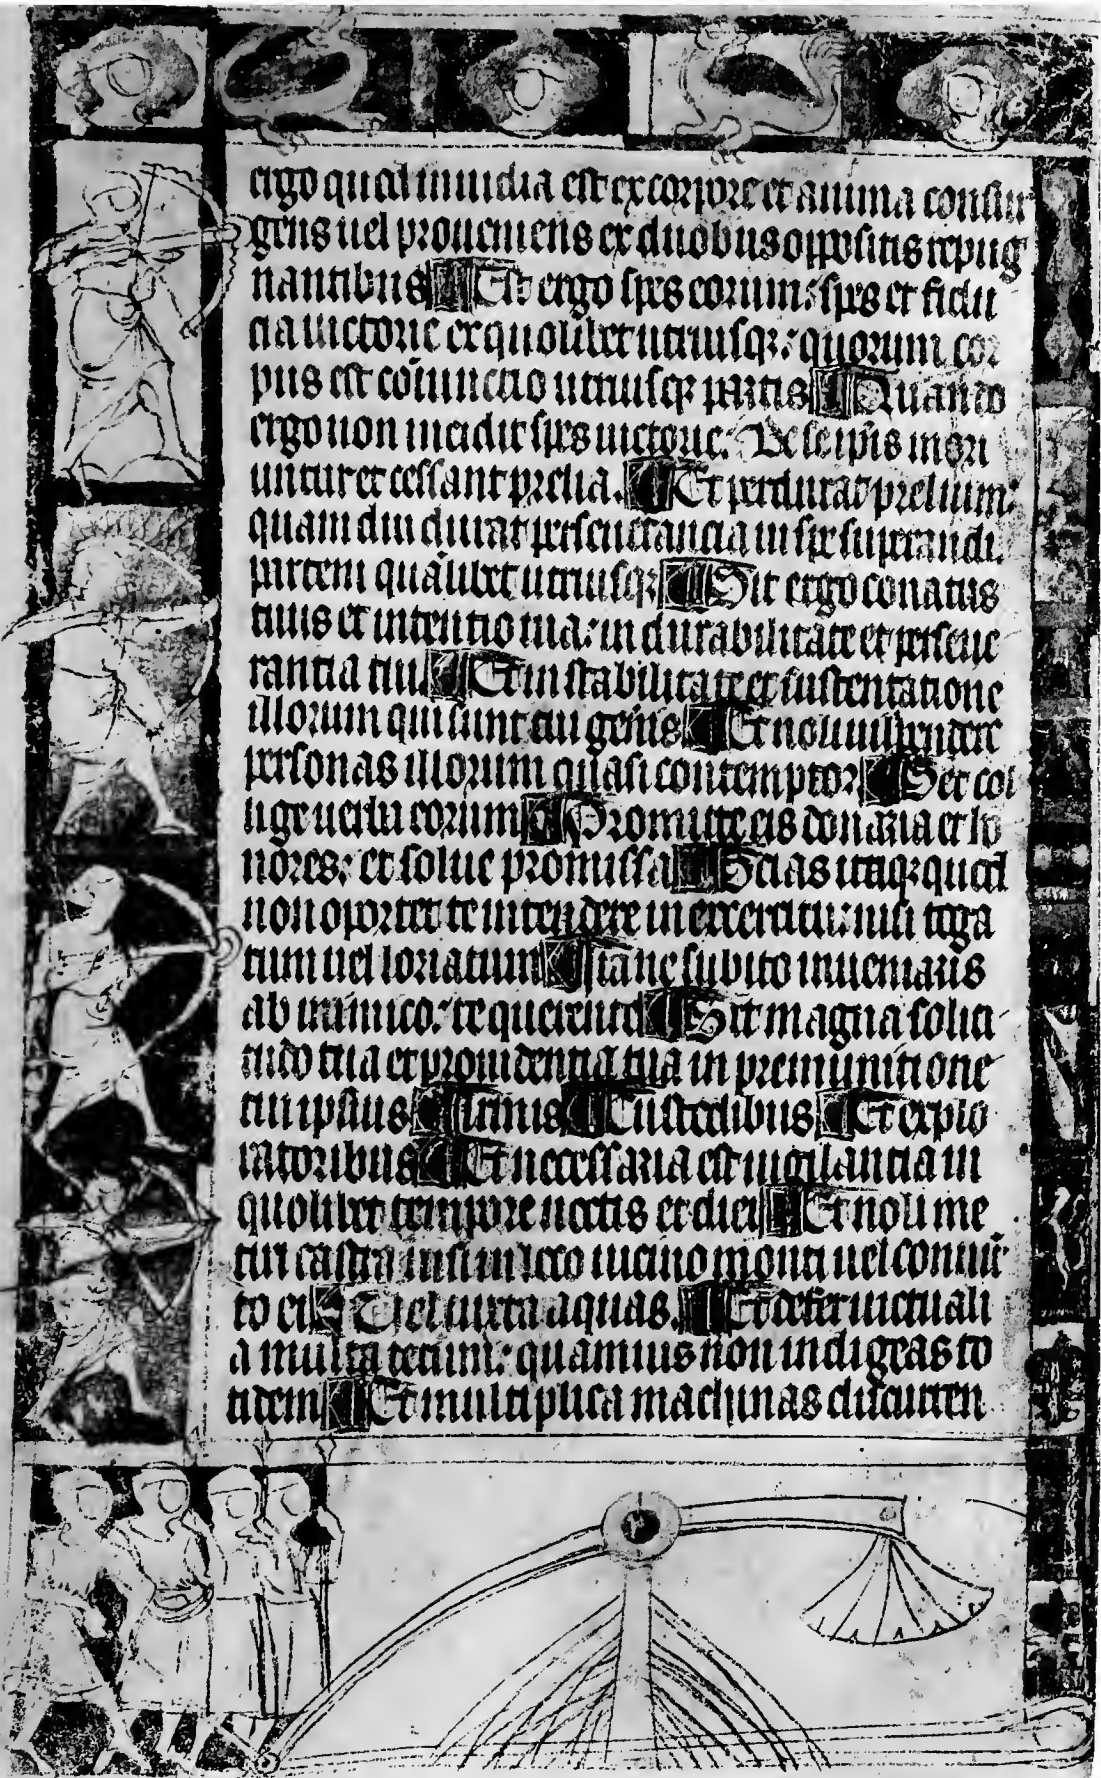 ergo quod inuidia est ex corpore et anima consur
gens uel proueniens ex duobus oppositis repug
nantibus Est ergo spes eorum: spes et fidu
cia uictorie ex quolibet utriusq;: quorum cor
pus est coniunctio utriusq; partis Quando
ergo non incidit spes uictorie: De se ipsis mori
untur et cessant prelia. Et perdurat prelium:
quam diu durat perseuerancia in spe superandi.
partem quamlibet utriusq; Sit ergo conatus
tuus et intentio tua: in durabilitate et perseue
rantia tui Et in stabilitate et sustentatione
illorum qui sunt tui generis Et noli uilipendere
personas illorum quasi contemptor Set col
lige uerba eorum Promitte eis donaria et ho
nores: et solue promissa Scias itaq; quod
non oportet te intendere in exercitu: nisi toga
tum uel loricatum Ita ne subito inueniaris
ab inimico: te querente Sit magna solici
tudo tua et prouidentia tua in premunitione
tui ipsius Armis Custodibus Et explo
ratoribus Et necessaria est uigilantia in
quolibet tempore noctis et diei Et noli me
tiri castra nisi in loco uicino monti uel coniunc
to ei Uel iuxta aquas. Et defer uictuali
a multa tecum: quamuis non indigeas to
tidem Et multiplica machinas discurren